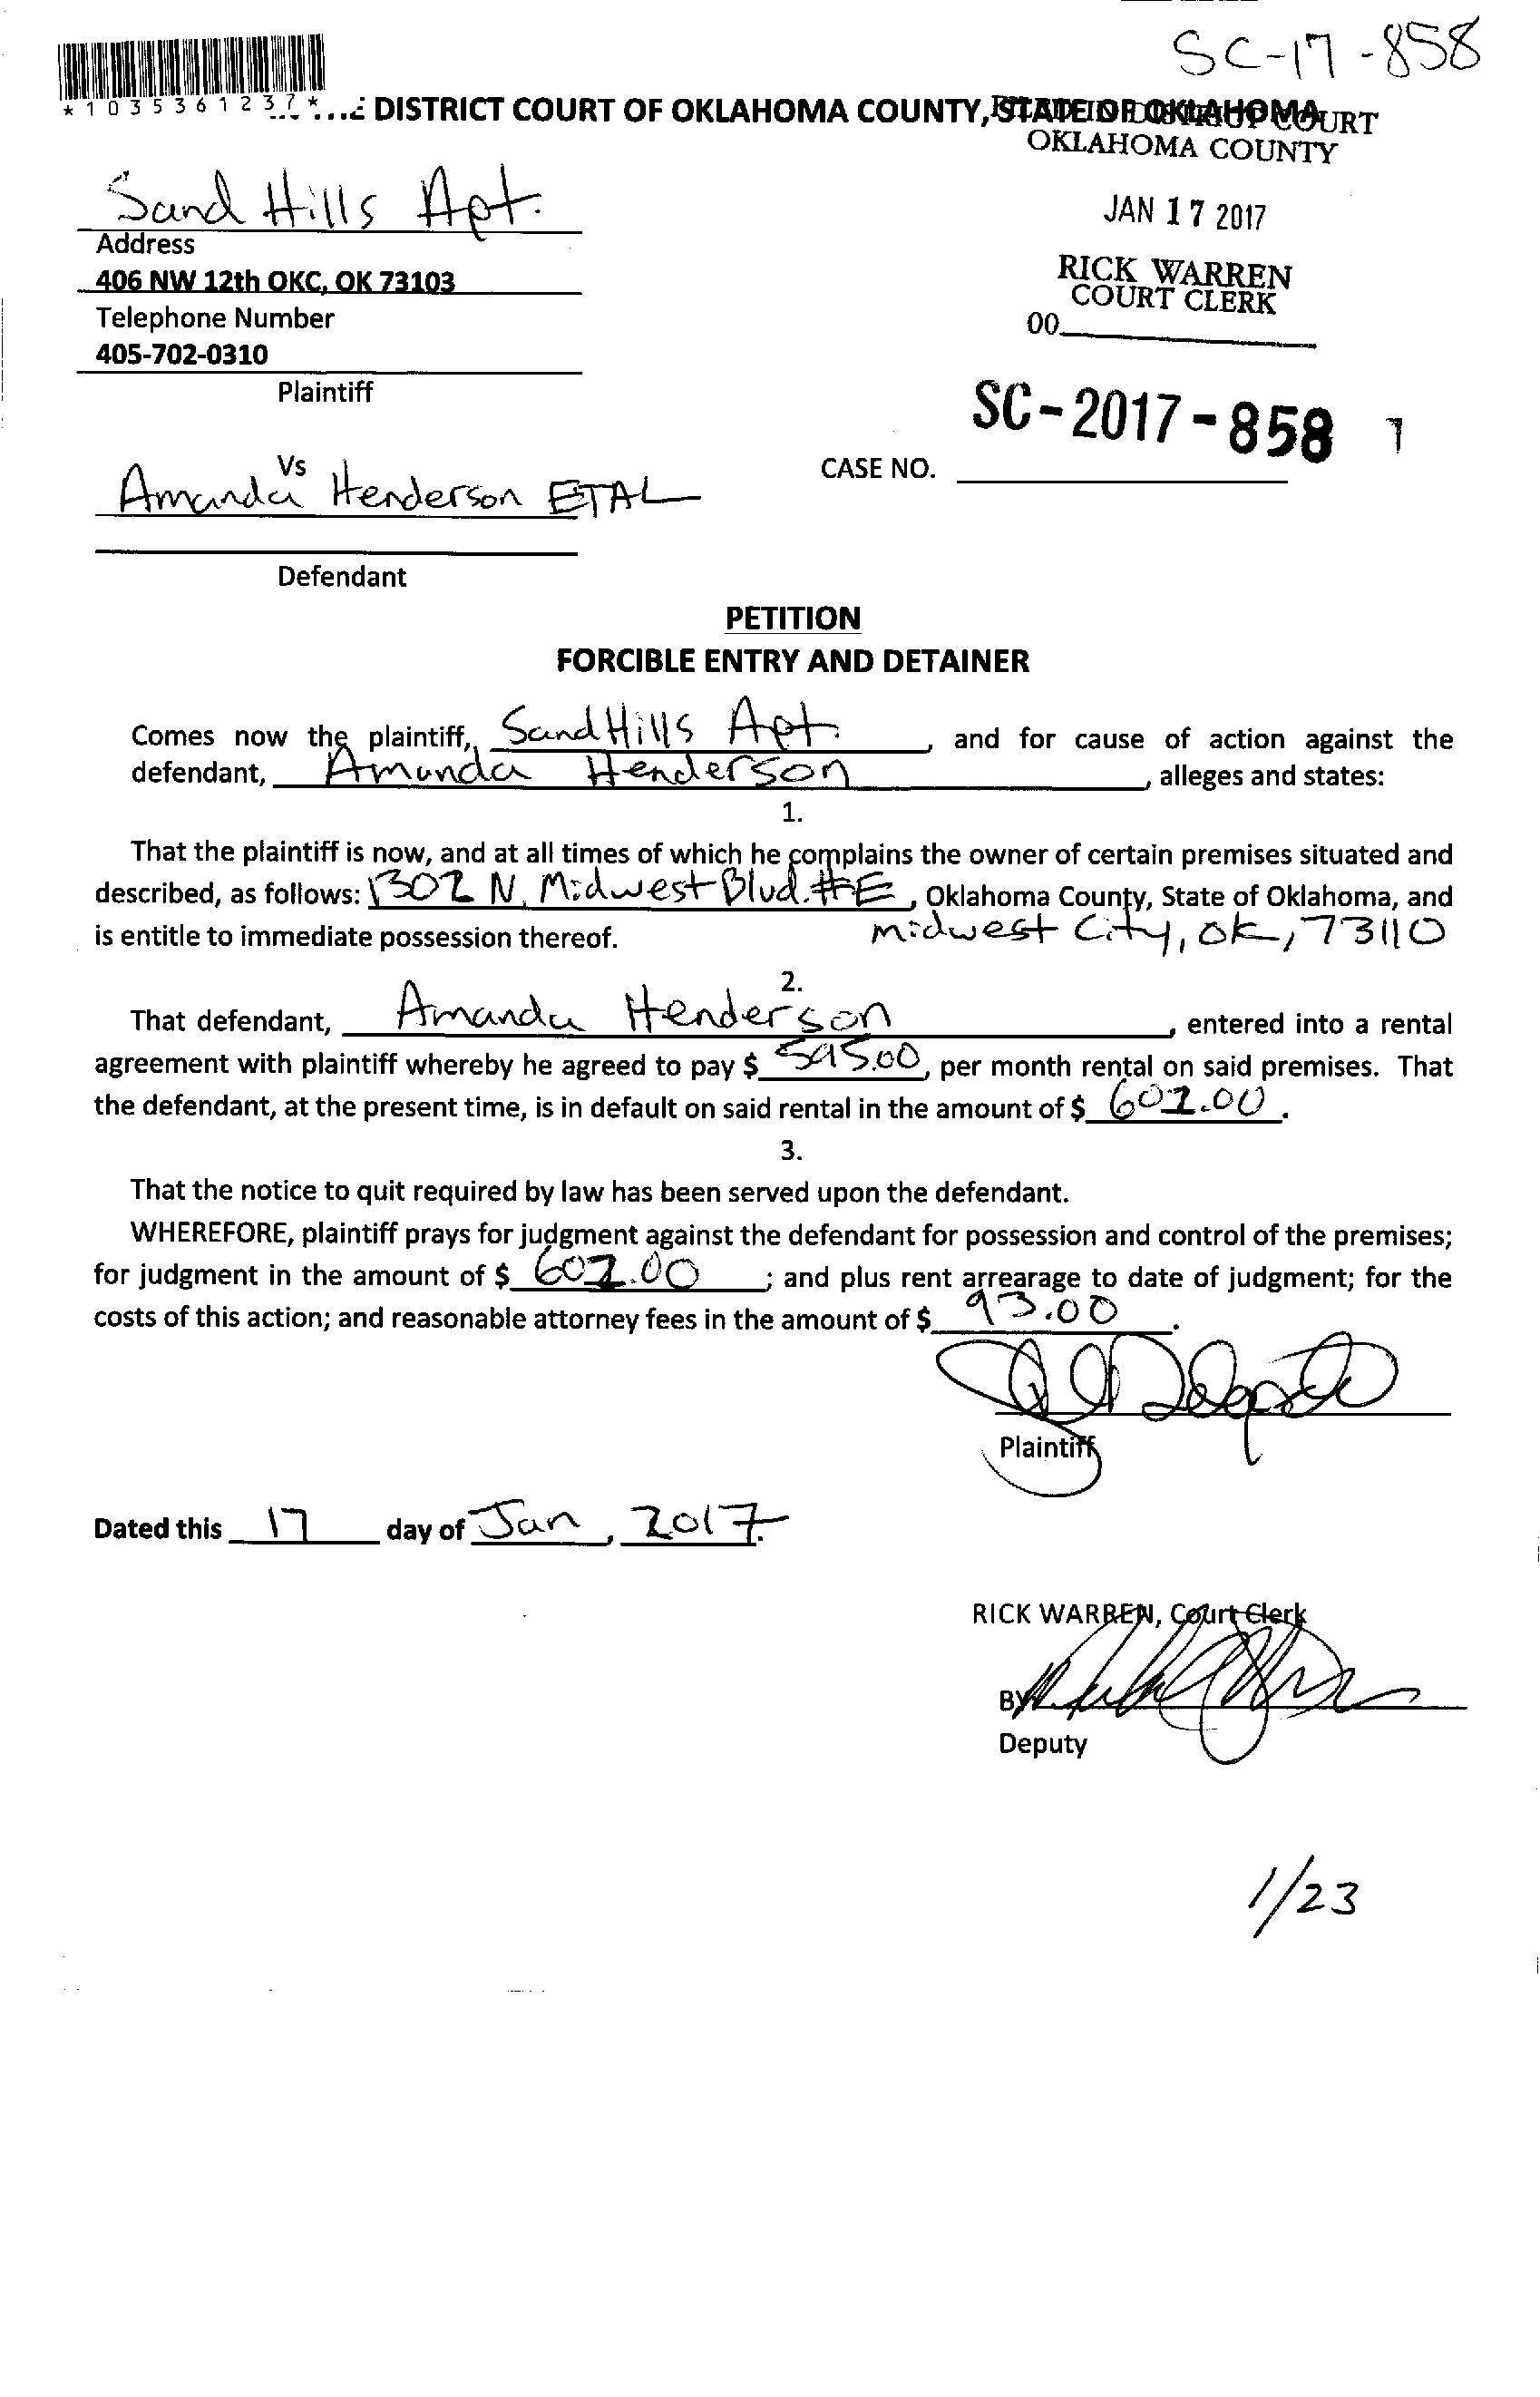 SC-17-858
*1035361237*
DISTRICT COURT OF OKLAHOMA COUNTY, STATE OF OKLAHOMA
COURT
OKLAHOMA COUNTY
Sand Hills Apt.
JAN 17 2017
Address
406 NW 12th OKC, OK 73103
RICK WARREN
COURT CLERK
Telephone Number
00
405-702-0310
Plaintiff
SC-2017-858 1
Vs
CASE NO.
Amanda Henderson ETAL
Defendant
PETITION
FORCIBLE ENTRY AND DETAINER
Comes now the plaintiff, Sand Hills Apt. , and for cause of action against the
defendant, Amanda Henderson , alleges and states:
1.
That the plaintiff is now, and at all times of which he complains the owner of certain premises situated and
described, as follows: 1302 N. Midwest Blvd. #E , Oklahoma County, State of Oklahoma, and
is entitle to immediate possession thereof. Midwest City, OK, 73110
2.
That defendant, Amanda Henderson , entered into a rental
agreement with plaintiff whereby he agreed to pay $ 595.00, per month rental on said premises. That
the defendant, at the present time, is in default on said rental in the amount of $ 602.00 .
3.
That the notice to quit required by law has been served upon the defendant.
WHEREFORE, plaintiff prays for judgment against the defendant for possession and control of the premises;
for judgment in the amount of $ 602.00 ; and plus rent arrearage to date of judgment; for the
costs of this action; and reasonable attorney fees in the amount of $ 93.00 .
Plaintiff
Dated this 17 day of Jan , 2017.
RICK WARREN, Court Clerk
BY
Deputy
1/23